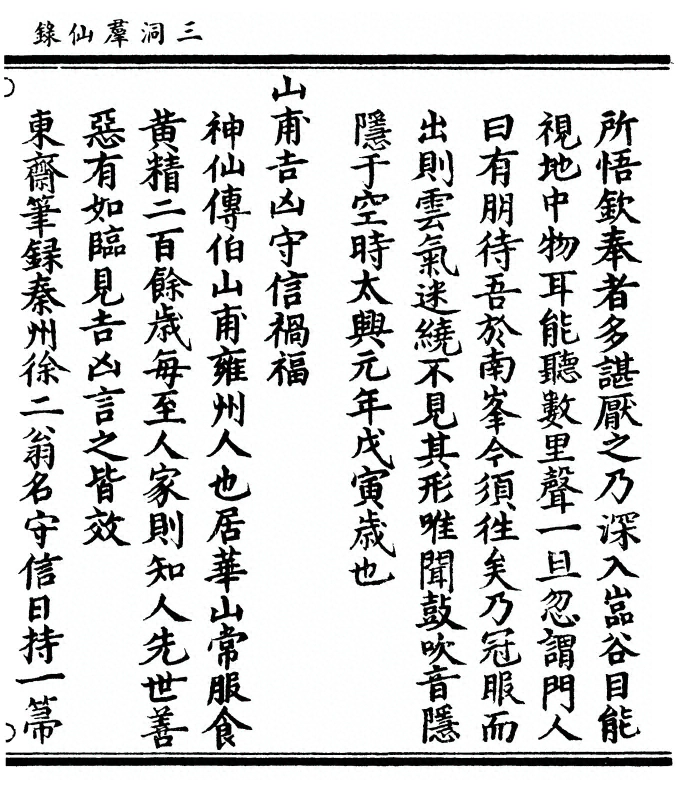 三洞羣仙錄
所悟欽奉者多諶厭之乃深入嵓谷目能
視地中物耳能聽數里聲一旦忽謂門人
曰有朋待吾於南峯今須徃矣乃冠服而
出則雲氣迷繞不見其形唯聞鼓吹音隱
隱于空時太興元年戊寅歲也
山甫吉凶守信禍福
神仙傳伯山甫雍州人也居華山常服食
黃精二百餘歲每至人家則知人先世善
惡有如臨見吉凶言之皆效
東齋筆録秦州徐二翁名守信日持一箒